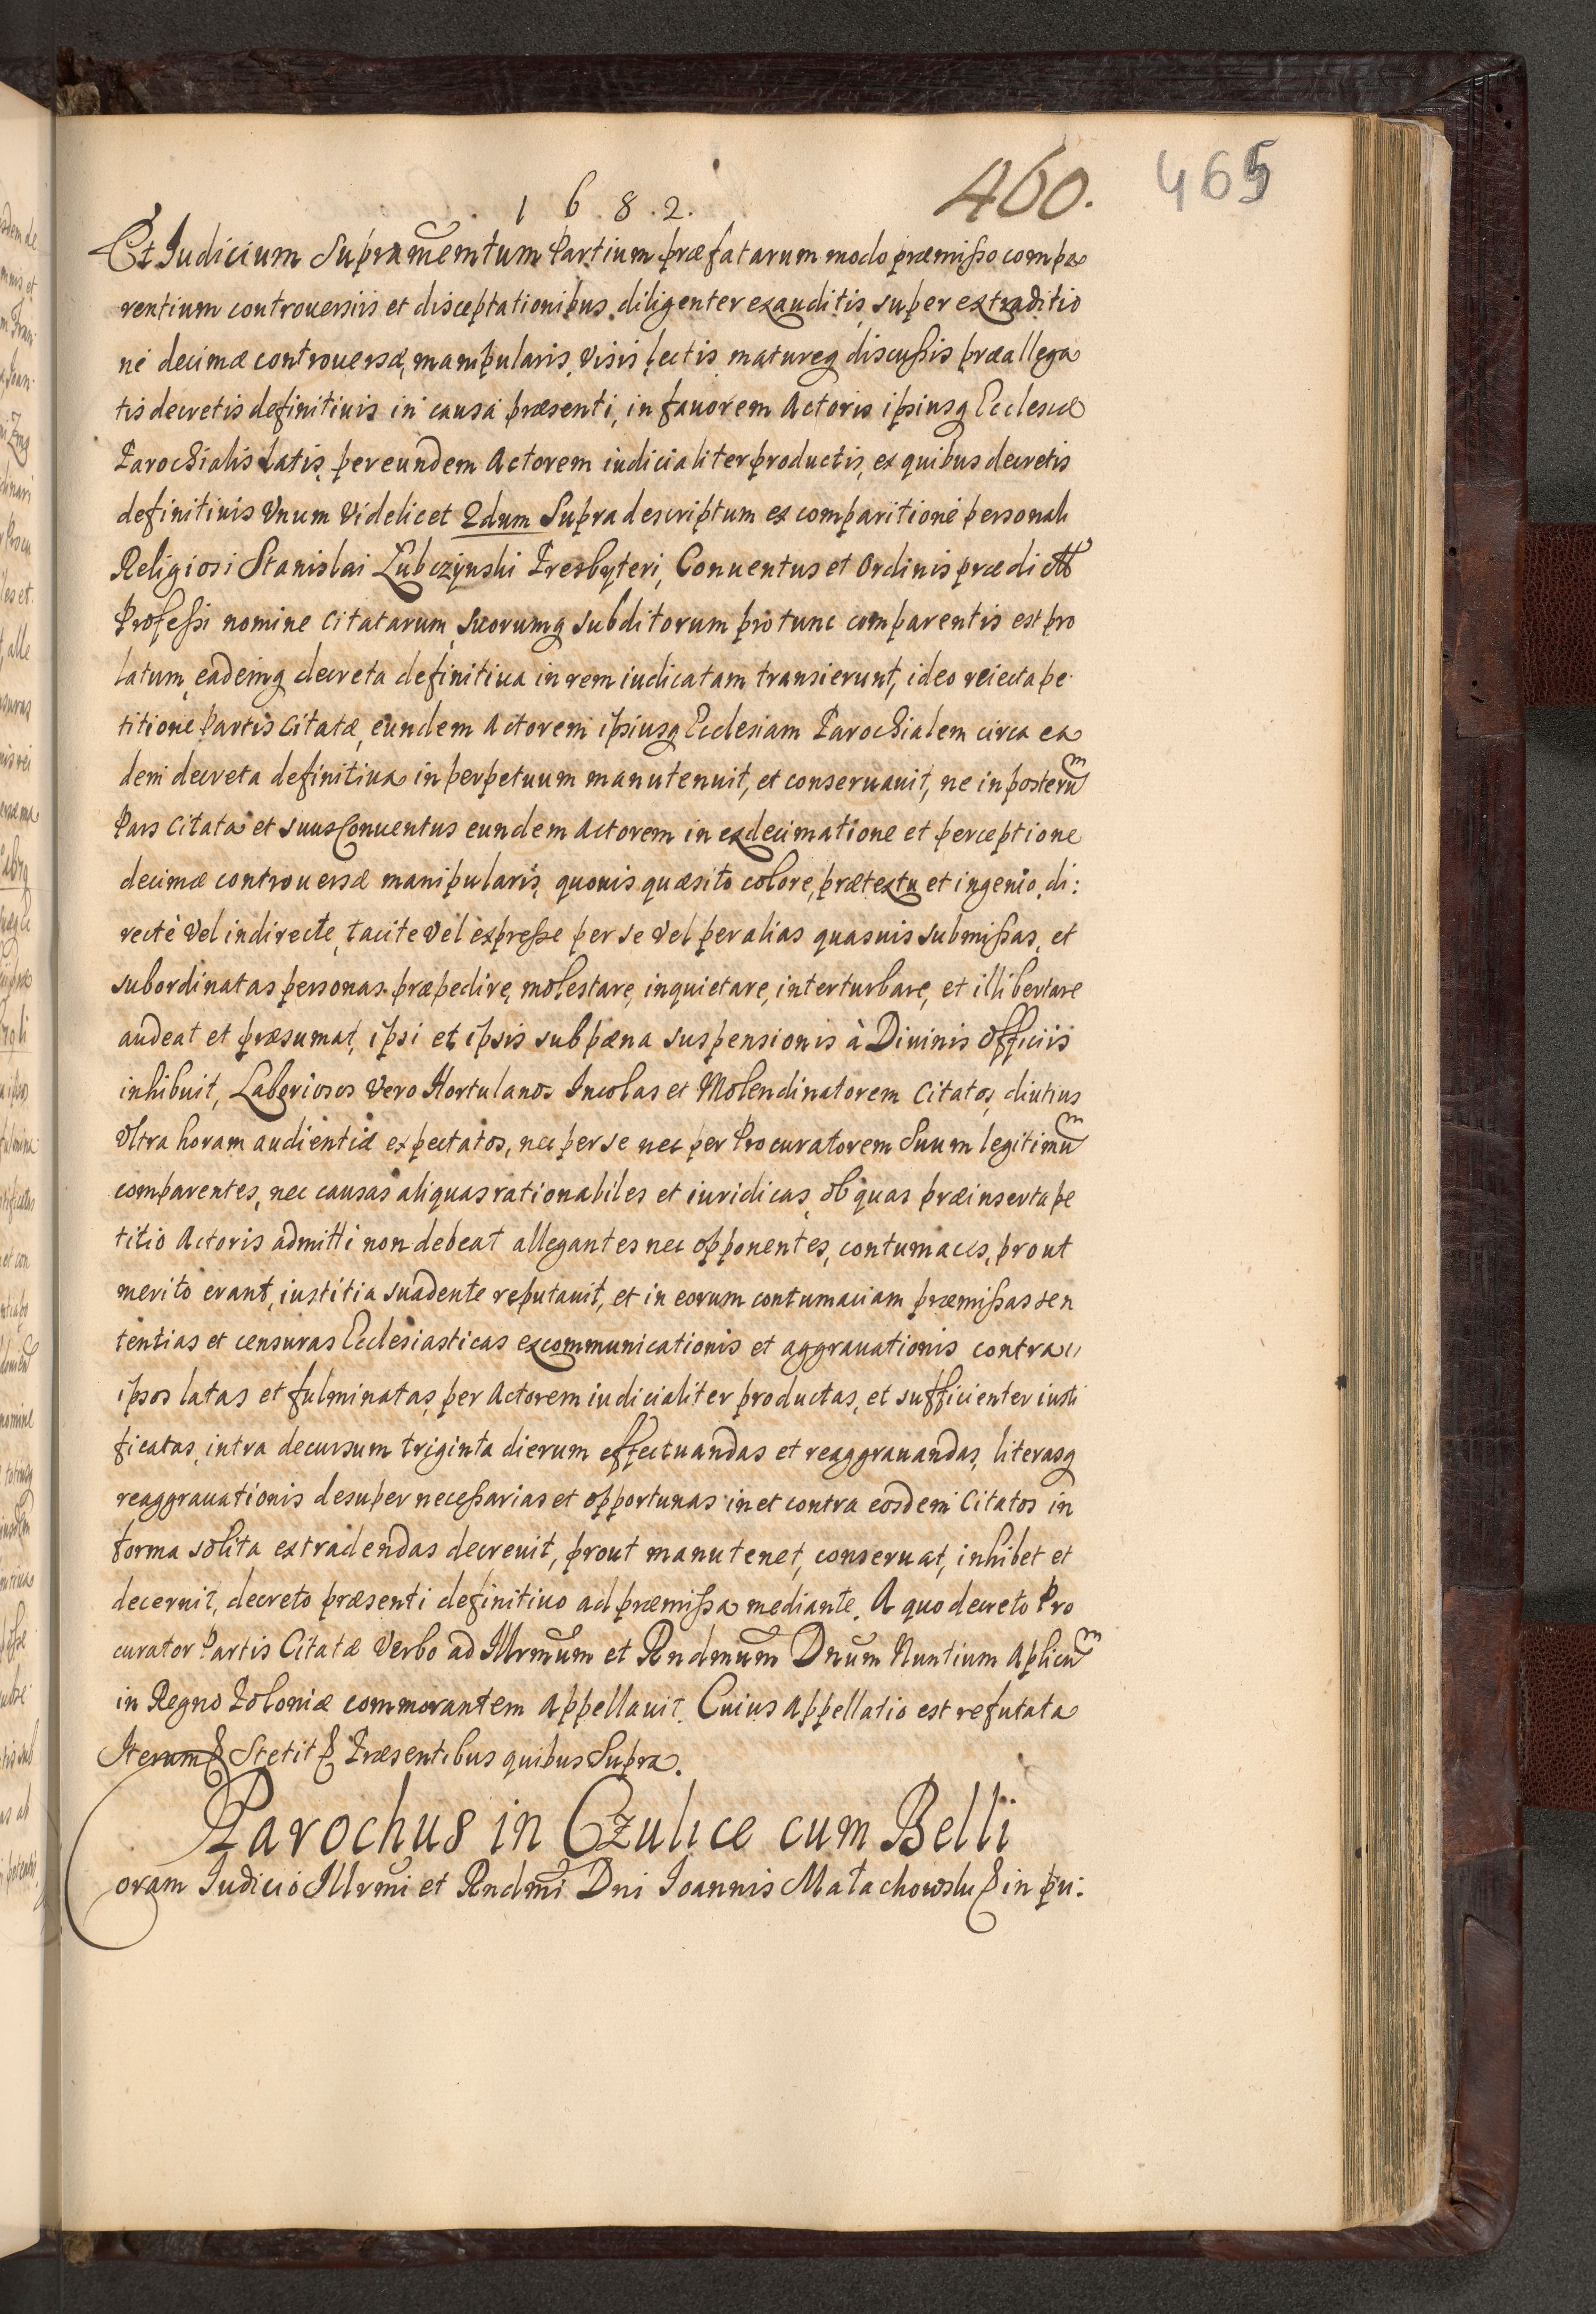 1 6 . 8 . 2 .
460.
465
Et Judicium Supramẽmtum Partium præfatarum modo præmisso compa
rentium controuersiis et disceptationibus diligenter exauditis, super extraditio
ne decimæ controuersæ, manipularis, visis lectis matureq discussis præallega
tis decretis definitiuis in causa præsenti, in fauorem Actoris ipsiusq Ecclesiæ
Parochialis latis, per eundem Actorem iudicialiter productis, ex quibus decretis
definitiuis Vnum Videlicet 2dum Supra descriptum ex comparitione personali
Religiosi Stanislai Lubczÿnski Presbyteri, Conuentus et Ordinis prædictt
Professi nomine Citatarum, suorumq subditorum pro tunc comparentis est pro
latum, eademq decreta definitiua in rem iudicatam transierunt, ideo reiecta pe
titione Partis Citatæ, eundem Actorem ipsiusq Ecclesiam Parochialem circa ea
dem decreta definitiua in perpetuum manutenuit, et conseruauit, ne in posterum
Pars Citata et suus Conuentus eundem Actorem in exdecimatione et perceptione
decimæ controuersæ manipularis, quouis quæsito colore, prætextu et ingenio, di:
rectè Vel indirecte, tacite Vel expresse per se Vel per alias quasuis submissas, et
subordinatas personas præpedire, molestare, inquietare, interturbare, et illibertare
audeat et præsumat, ipsi et ipsis sub pæna suspensionis à Diuinis officiis
inhibuit, Laboriosos Vero Hortulanos Incolas et Molendinatorem Citatos, diutius
Vltra horam audientiæ expectatos, nec per se nec per Procuratorem Suum legitimum
comparentes, nec causas aliquas rationabiles et iuridicas, ob quas præinserta pe
titio Actoris admitti non debeat allegantes nec opponentes, contumaces, prout
merito erant, iustitia suadente reputauit, et in eorum contumaciam præmissas sen
tentias et censuras Ecclesiasticas excommunicationis et aggrauationis contra
ipsos latas et fulminatas, per Actorem iudicialiter productas, et sufficienter iusti
ficatas, intra decursum triginta dierum effectuandas et reaggrauandas, literasq
reaggrauationis desuper necessarias et opportunas in et contra eosdem Citatos in
forma solita extradendas decreuit, prout manutenet, conseruat, inhibet et
decernit, decreto præsenti definitiuo ad præmissa mediante. A quo decreto Pro
curator Partis Citatæ Verbo ad Illrmũm et Rndmũm Dnũm Nuntium Aplicum
in Regno Poloniæ commorantem Appellauit. Cuius Appellatio est refutata
Iterum & Stetit & Præsentibus quibus Supra.
Parochus in Czulice cum Belli
oram Judicio Illrmi et Rndmi Dni Ioannis Małachowski & in pri: